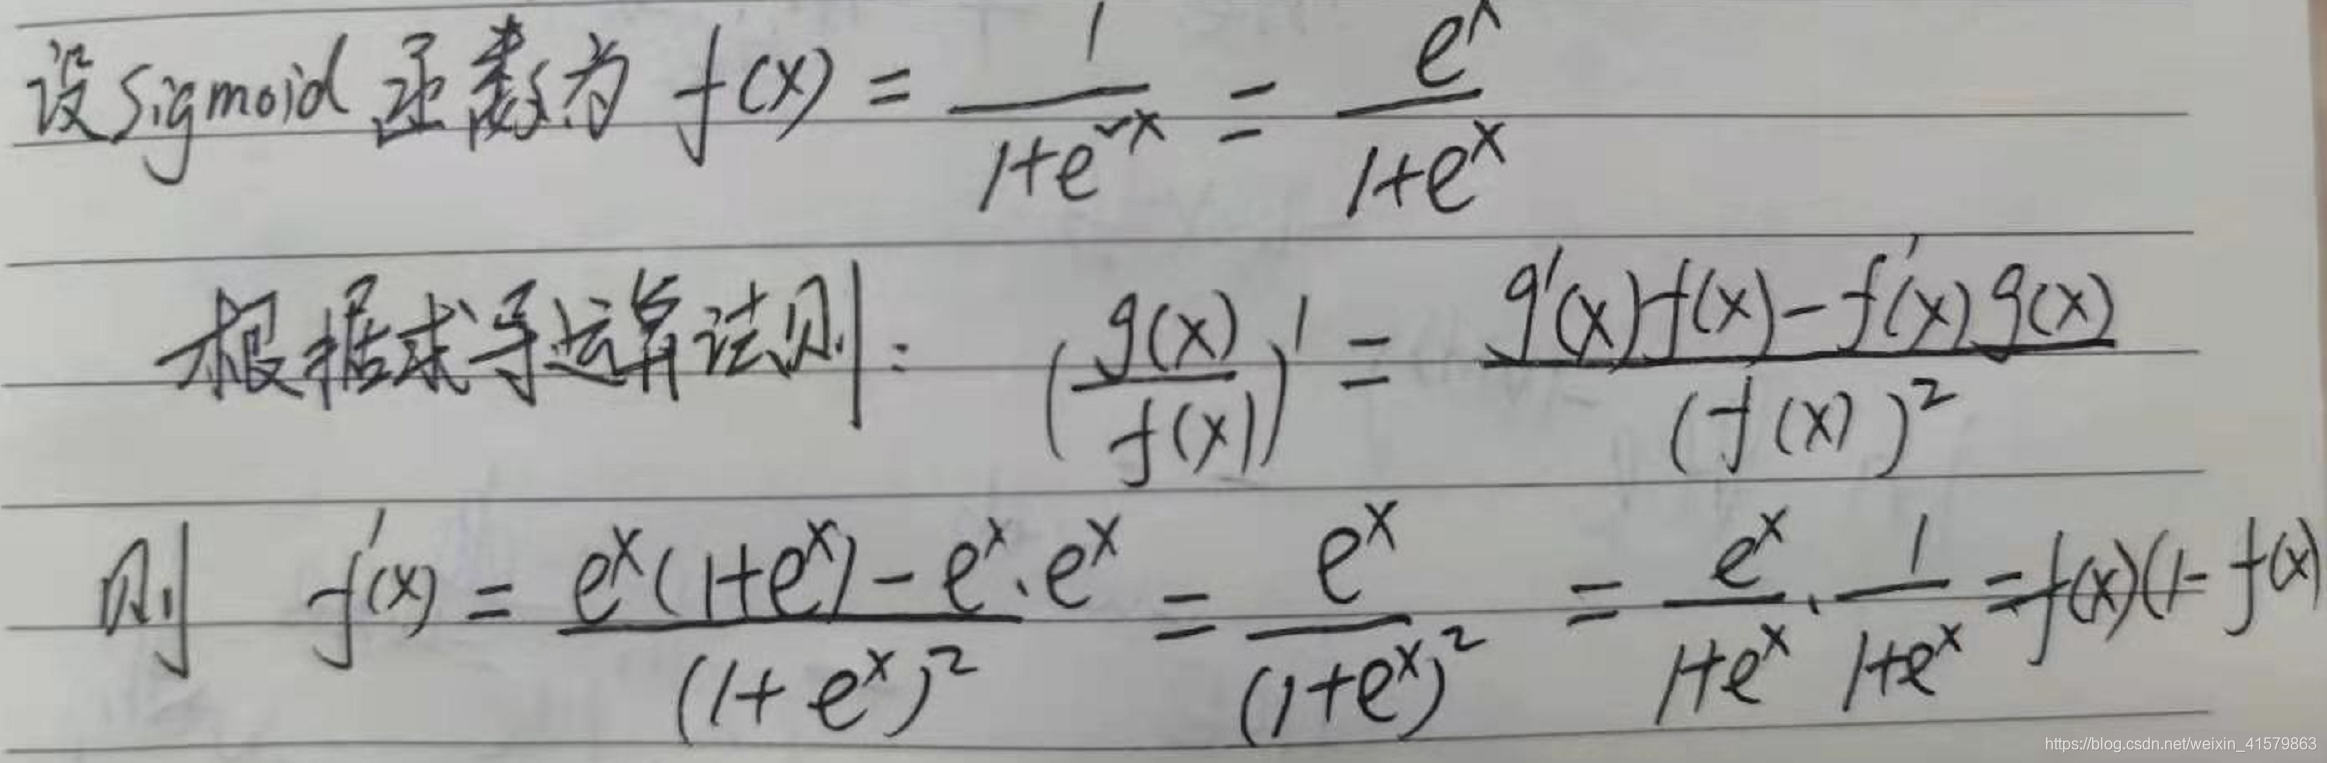 设Sigmoid函数为 f(x) = \frac{1}{1+e^{-x}} = \frac{e^x}{1+e^x}
根据求导运算法则: (\frac{g(x)}{f(x)})' = \frac{g'(x)f(x)-f'(x)g(x)}{(f(x))^2}
则 f'(x) = \frac{e^x(1+e^x)-e^x·e^x}{(1+e^x)^2} = \frac{e^x}{(1+e^x)^2} = \frac{e^x}{1+e^x}·\frac{1}{1+e^x} = f(x)(1-f(x)
https://blog.csdn.net/weixin_41579863